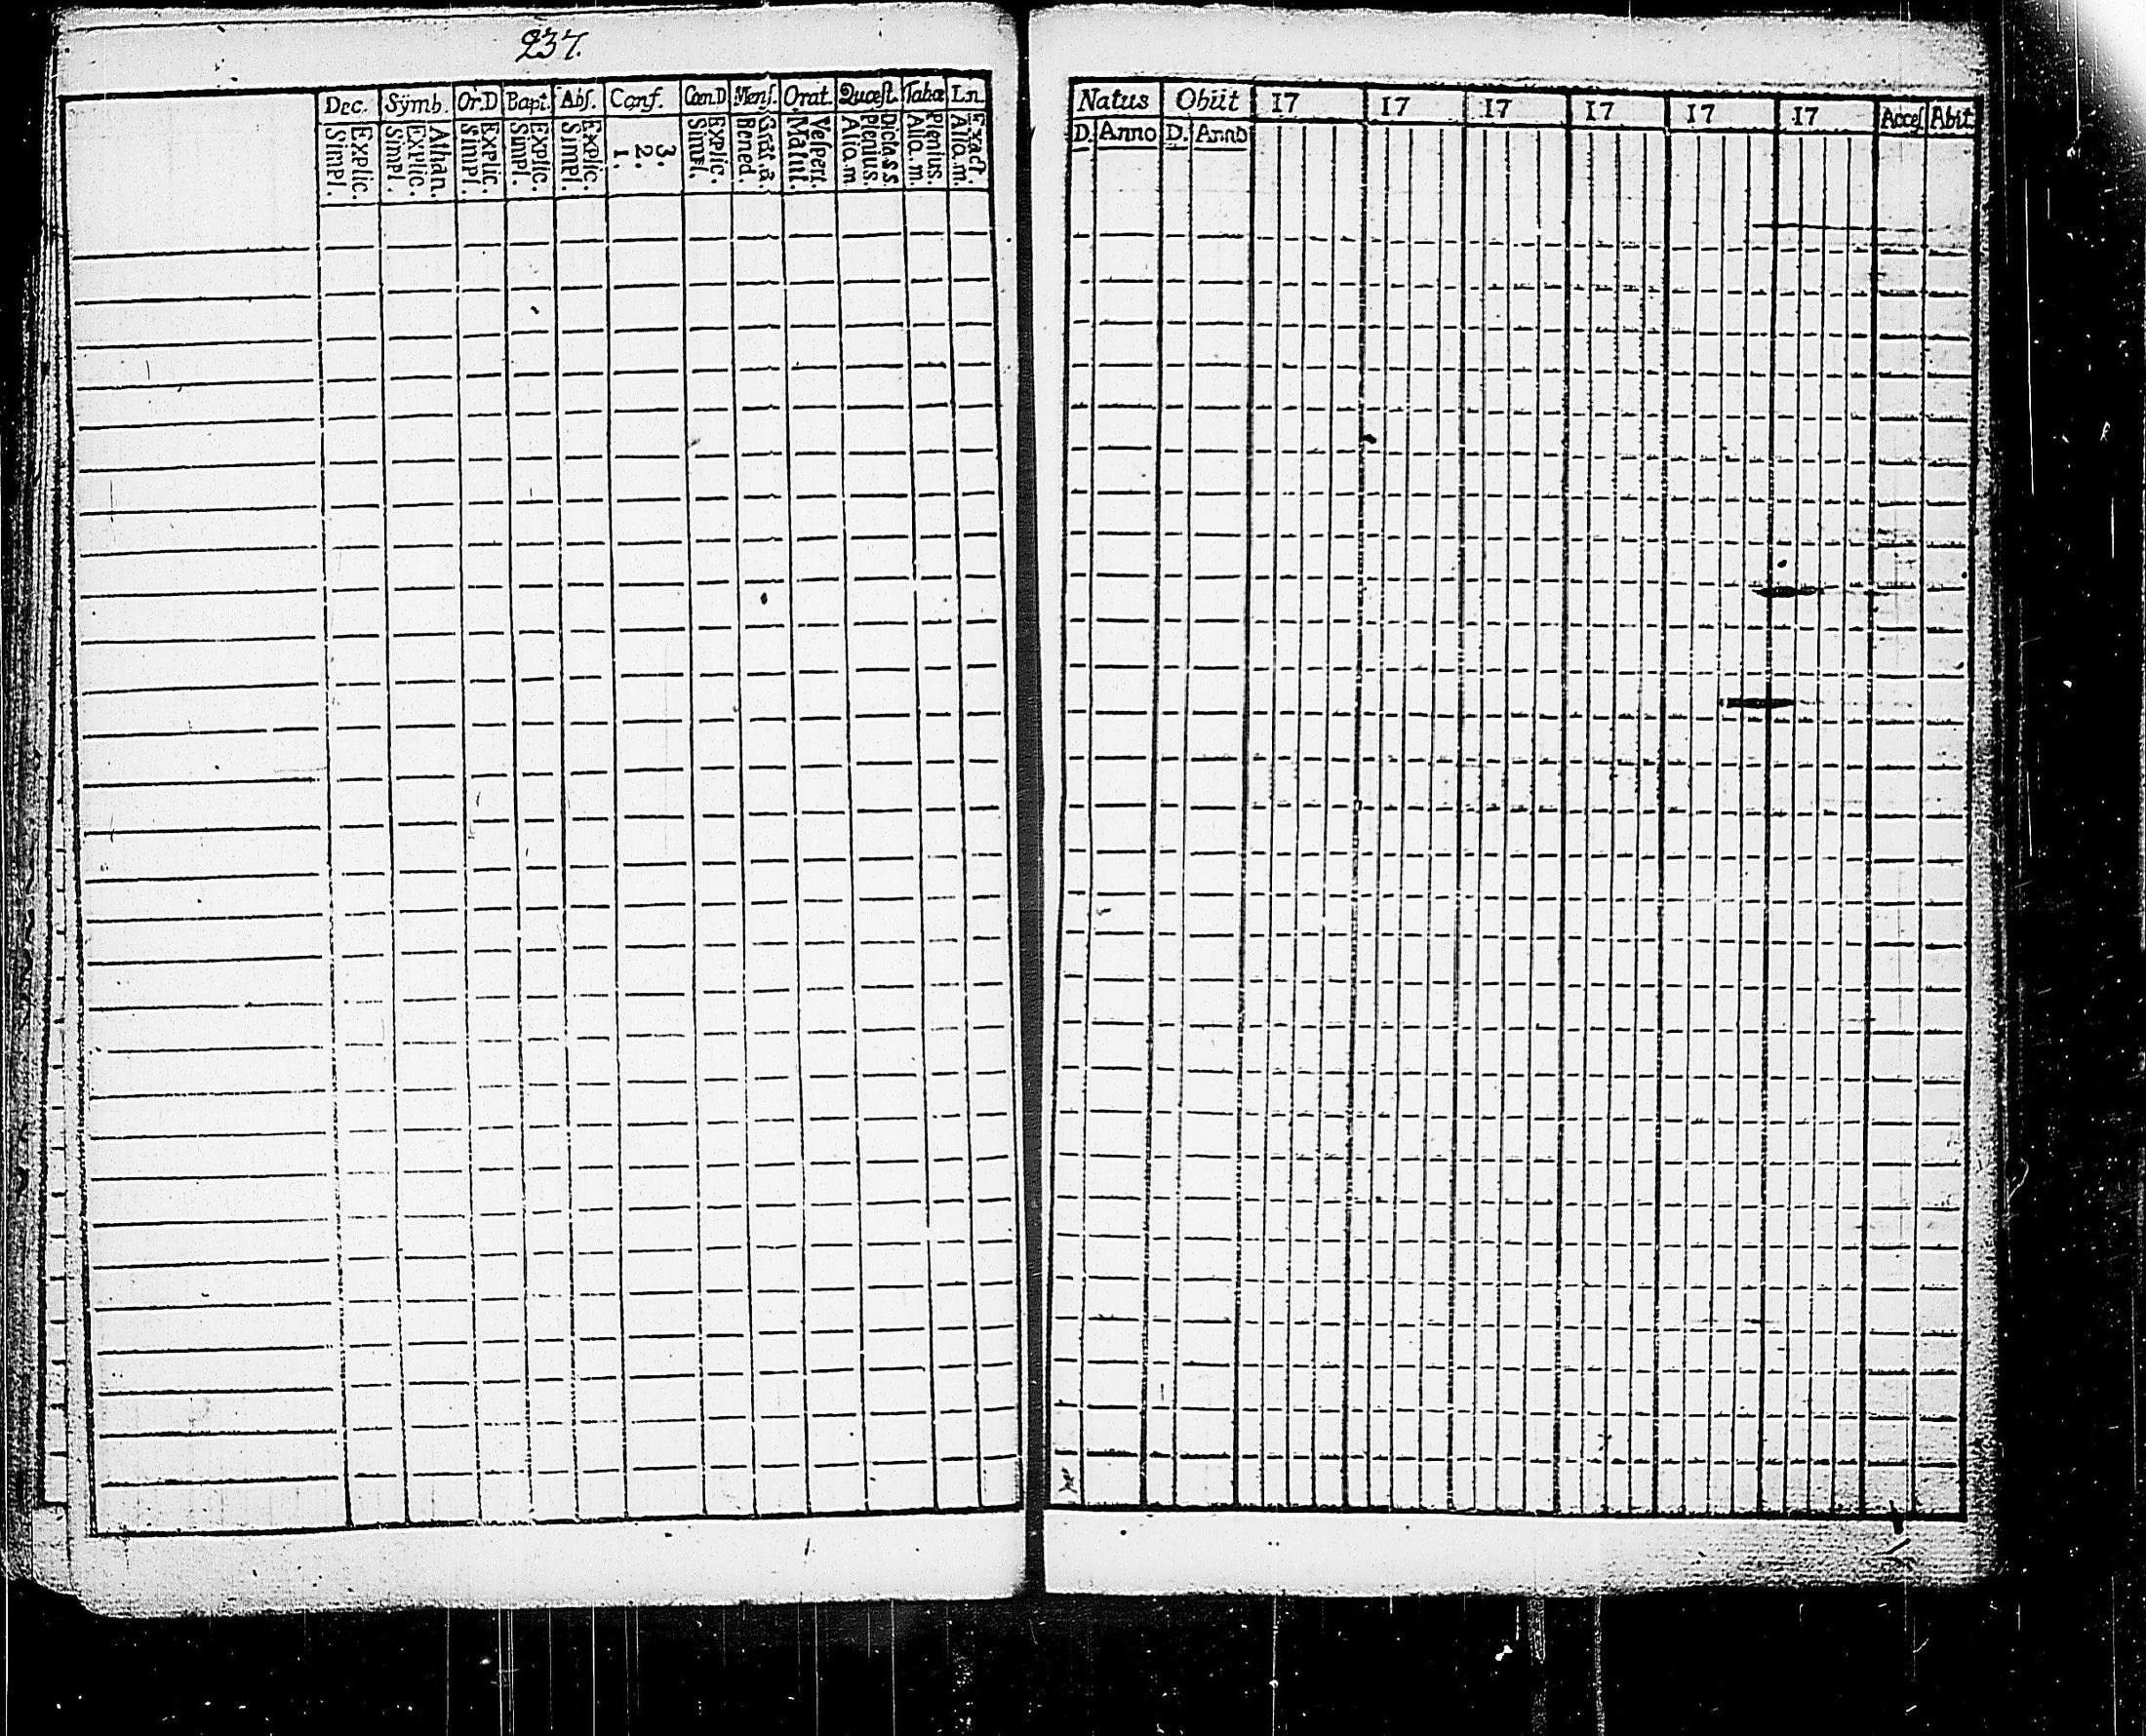 237.
Dec. Sÿmb. Or.D Bapt. Abs. Conf. CœnD Mens. Orat. Quœst. Tabœ Ln.
Simpl. Explic. Simpl. Explic. Athan. Simpl. Explic. Simpl. Explic. Simpl. Explic. 1. 2. 3. Simpl. Explic. Bened. Grat. a. Matut. Vesperi. Alio.m Plenius. Dicta.s.s. Alia.m. Plenius. Alia.m. Exact.
Natus Obiit 17 17 17 17 17 17 Acces Abit
D. Anno D. Anno